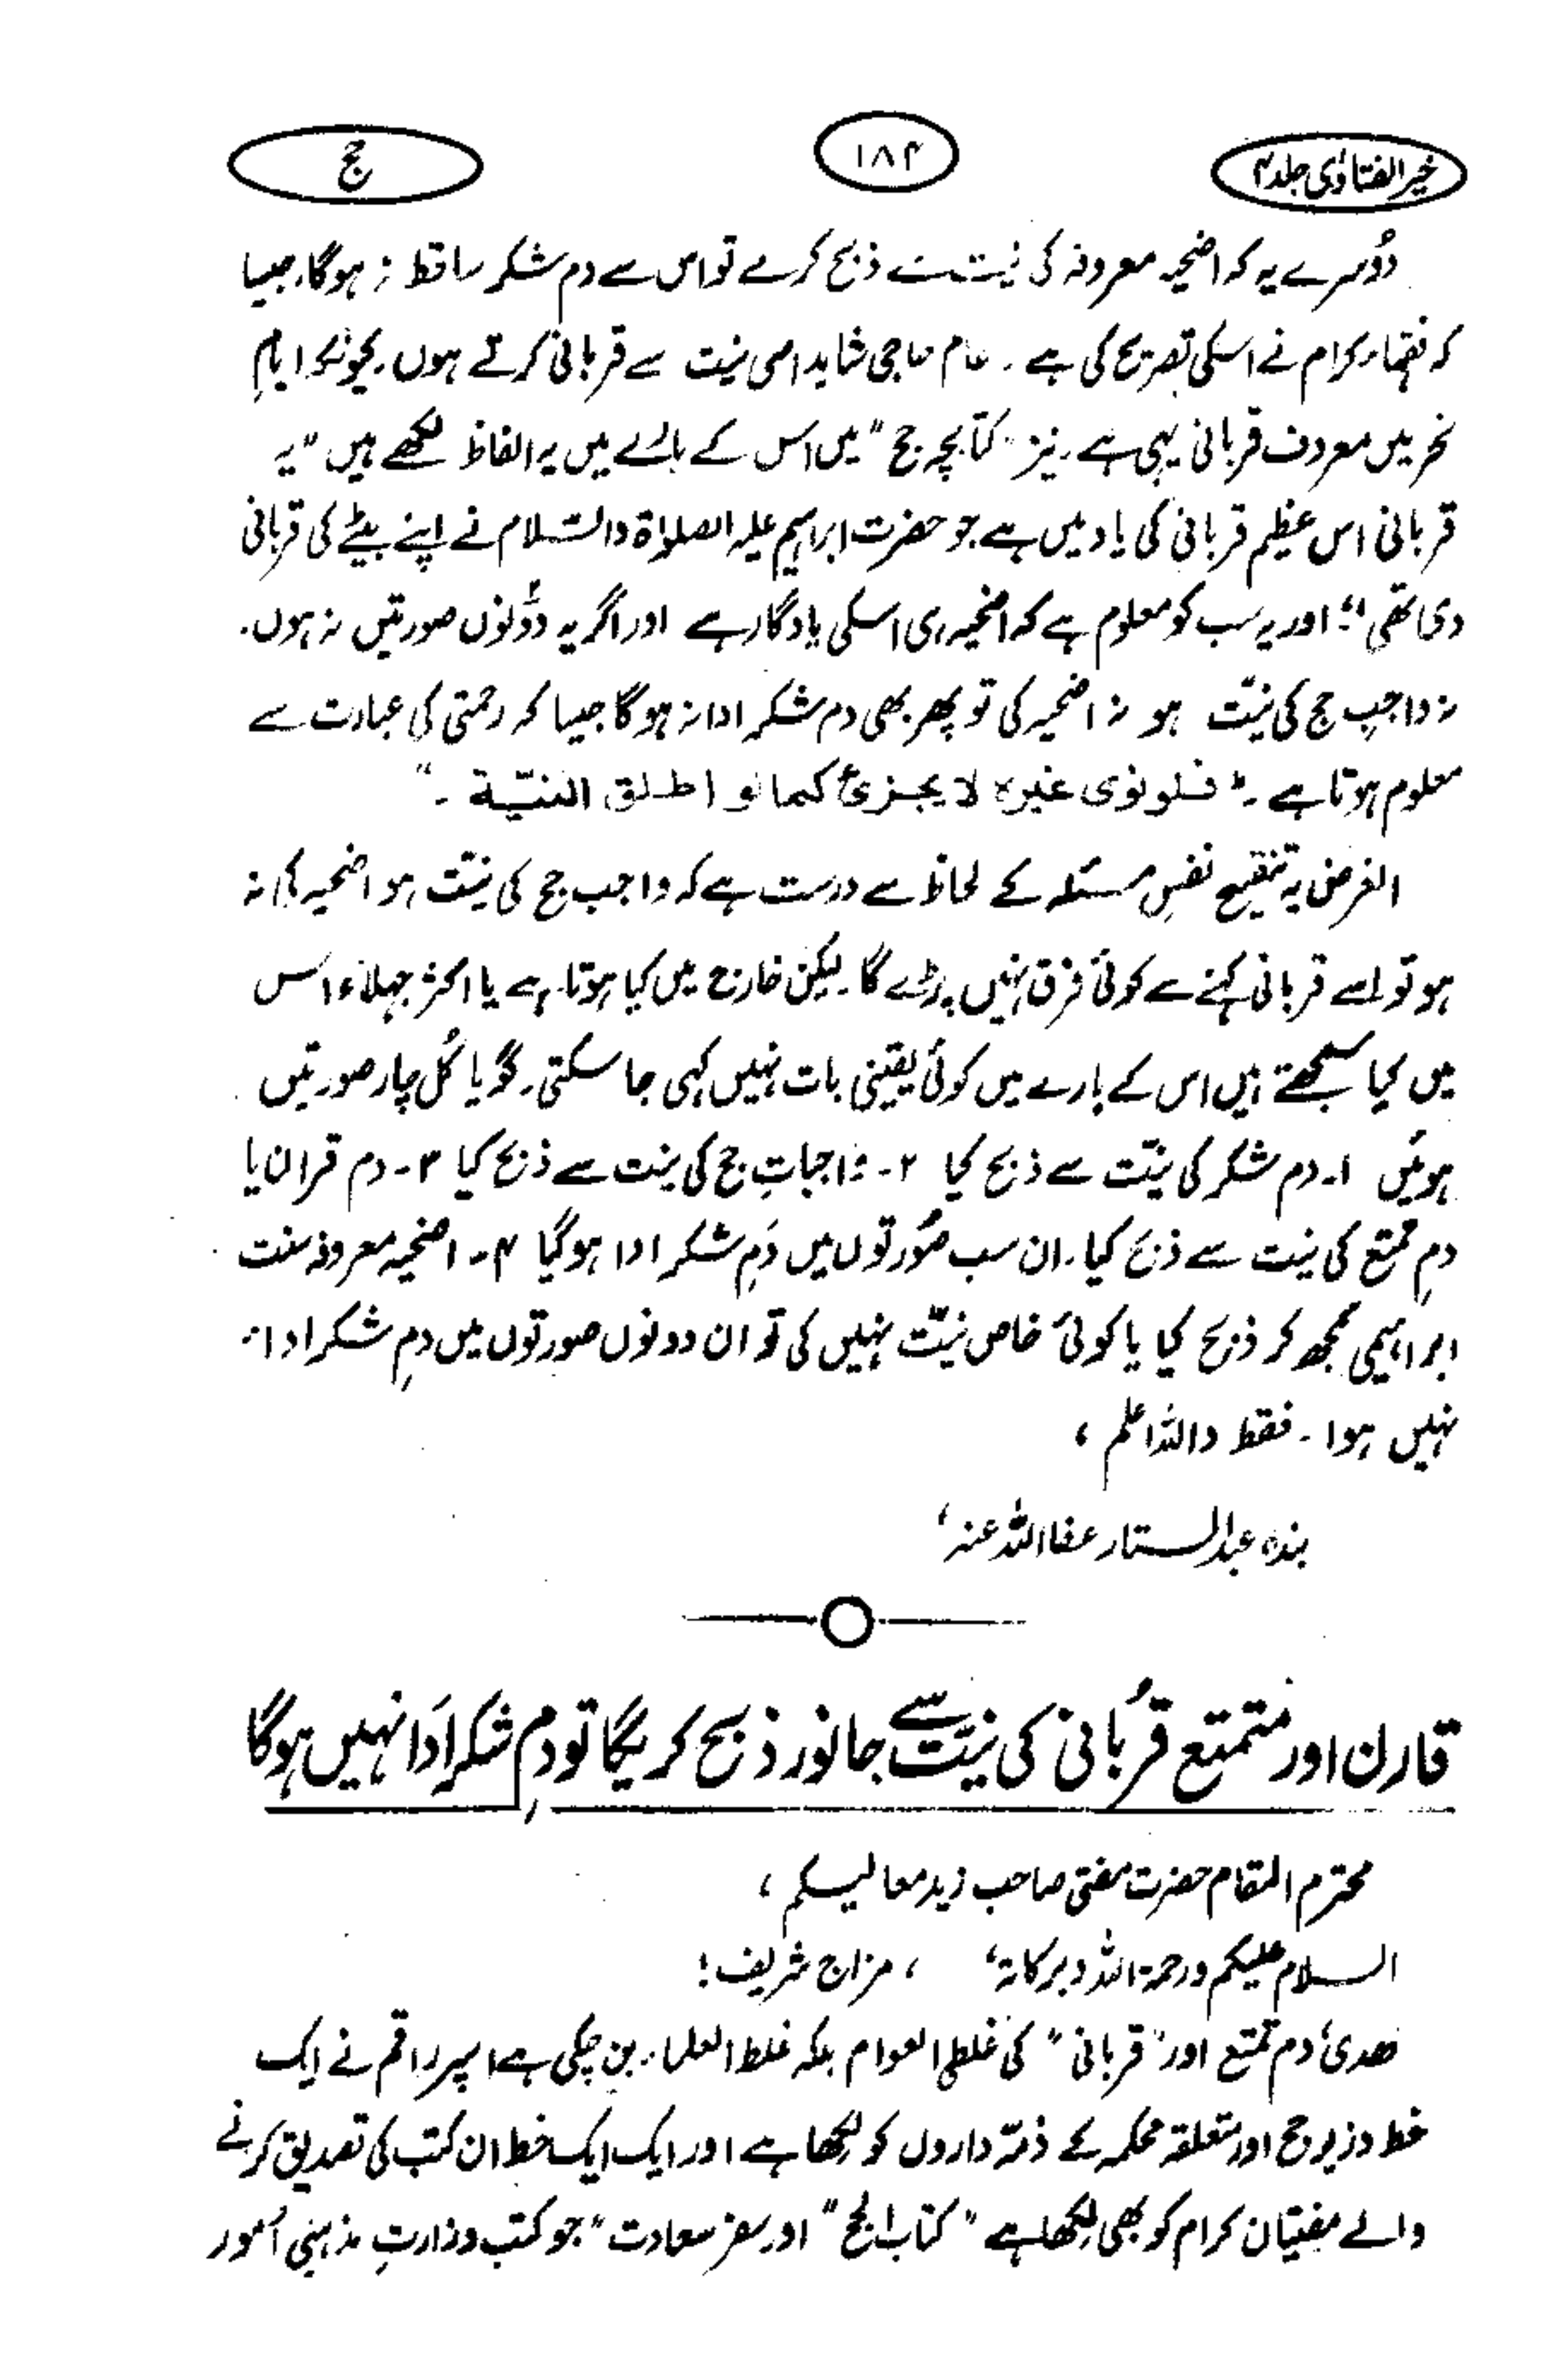 خیر الفتاویٰ جلد ۴
۱۸۴
حج
دُوسرے یہ کہ اضحیہ معروفہ کی نیت سے ذبح کرے تو اس سے دم شکر ساقط نہ ہوگا۔ جیسا
کہ فقہاء کرام نے اسکی تصریح کی ہے۔ عام حاجی شاید اسی نیت سے قربانی کرتے ہوں۔ کیونکہ ایامِ
نحر میں معروف قربانی یہی ہے۔ نیز "کتابچہ حج" میں اس کے بارے میں یہ الفاظ لکھے ہیں "یہ
قربانی اس عظیم قربانی کی یاد میں ہے جو حضرت ابراہیم علیہ الصلوٰۃ والسّلام نے اپنے بیٹے کی قربانی
دی تھی"؛ اور یہ سب کو معلوم ہے کہ اضحیہ ہی اسکی یادگار ہے اور اگر یہ دونوں صورتیں نہ ہوں۔
نہ واجبِ حج کی نیّت ہو نہ اضحیہ کی تو پھر بھی دم شکر ادا نہ ہوگا جیسا کہ رحمتی کی عبارت سے
معلوم ہوتا ہے۔ "فلو نوی غیرہ لا یجزئ کما لو اطلق النیّۃ۔"
الغرض یہ تنقیح نفسِ مسئلہ کے لحاظ سے درست ہے کہ واجب حج کی نیّت ہو اضحیہ کی نہ
ہو تو اسے قربانی کہنے سے کوئی فرق نہیں پڑے گا۔ لیکن خارج میں کیا ہوتا ہے یا اکثر جہلاء اس
میں کیا سمجھتے ہیں اس کے بارے میں کوئی یقینی بات نہیں کہی جا سکتی۔ گویا کُل چار صورتیں
ہوئیں ۱۔ دم شکر کی نیّت سے ذبح کیا ۲۔ واجباتِ حج کی نیت سے ذبح کیا ۳۔ دم قران یا
دمِ تمتع کی نیت سے ذبح کیا۔ ان سب صُورتوں میں دَمِ شکر ادا ہوگیا ۴۔ اضحیہ معروفہ سنت
ابراہیمی سمجھ کر ذبح کیا یا کوئی خاص نیّت نہیں کی تو ان دونوں صورتوں میں دمِ شکر ادا
نہیں ہوا۔ فقط واللہ اعلم،
بندہ عبدالستار عفا اللہ عنہ،
قارن اور متمتع قربانی کی نیّت سے جانور ذبح کریگا تو دمِ شکر اَدا نہیں ہوگا
محترم المقام حضرت مفتی صاحب زید معالیکم،
السلام علیکم ورحمۃ اللہ وبرکاتہ، ، مزاج شریف؛
ھدی، دم تمتع اور "قربانی" کی غلطی العوام بلکہ غلط العلماء بن چکی ہے اسپر راقم نے ایک
خط وزیر حج اور متعلقہ محکمہ کے ذمّہ داروں کو لکھا ہے اور ایک ایک خط ان کتب کی تصدیق کرنے
والے مفتیان کرام کو بھی لکھا ہے "کتاب الحج" اور سفر سعادت" جو کتب وزارتِ مذہبی اُمور